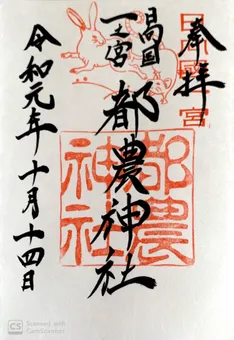 奉拝
日向國一宮
日向国
一之宮
都農神社
都農
神社
令和元年十月十四日
CS
Scanned with
CamScanner